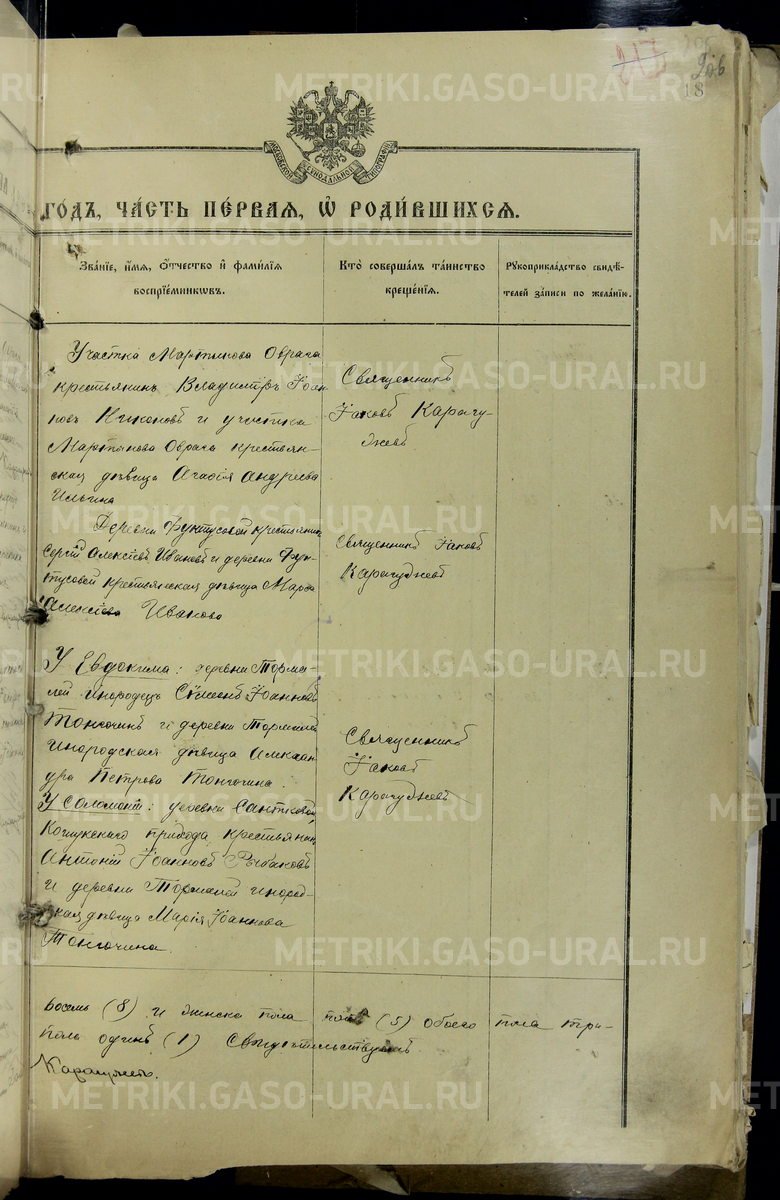 206
18
МОСКОВСКОЙ СѴНОДАЛЬНОЙ ТИПОГРАФІИ
ГО́ДЪ, ЧА́СТЬ ПЕ́РВАЯ, Ѡ҆ РОДИ́ВШИХСЯ.
Зва́нїе, и҆́мя, ѻ҆́тчество и҆ фами́лїя
воспрїе́мникѡвъ.
Кто̀ соверша́лъ та́инство
креще́нїя.
Рꙋкоприкла́дство свидѣ́-
телей за́писи по жела́нїю.
Участка Мартынова Оврага
крестьянинъ Владиміръ Іоан
новъ Никоновъ и участка
Мартынова Оврага крестьян-
ская дѣвица Агафія Андреева
Ильина
Священникъ
Іаковъ Карагу-
жевъ
Деревни Фунтусовой крестьянинъ
Сергій Алексѣевъ Ивановъ и деревни Фун-
тусовой крестьянская дѣвица Марѳа
Алексѣева Иванова
Священникъ Іаковъ
Карагуджевъ
У Евдокима: деревни Торма-
лей инородецъ Сѵмеонъ Іоанновъ
Тонгочинъ и деревни Тормалей
инородская дѣвица Алексан
дра Петрова Тонгочина.
У Саломоніи: деревни
прихода, крестьянинъ
Антоній Іоанновъ Рыбаковъ
и деревни Тормалей инород-
ская дѣвица Марія Іоаннова
Тонгочина.
Священникъ
Іаковъ
Карагуджевъ
восемь (8) и женска пола пять (5) обоего пола три-
пола одинъ (1) Свидѣтельствуемъ.
METRIKI.GASO-URAL.RU